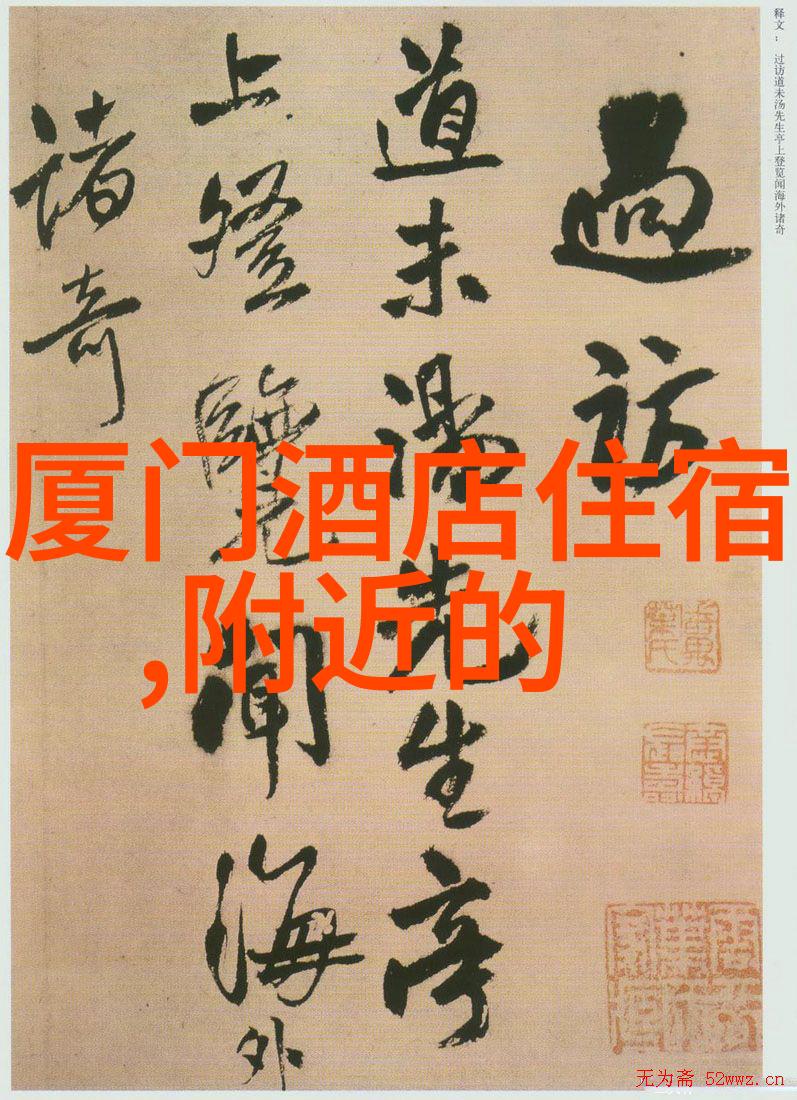 释文： 过访道未汤先生亭上登览闻海外诸奇
過訪
道未湯先生亭
上登覽聞海外
諸奇
厦门酒店住宿
,附近的
无为斋 52wwz.cn